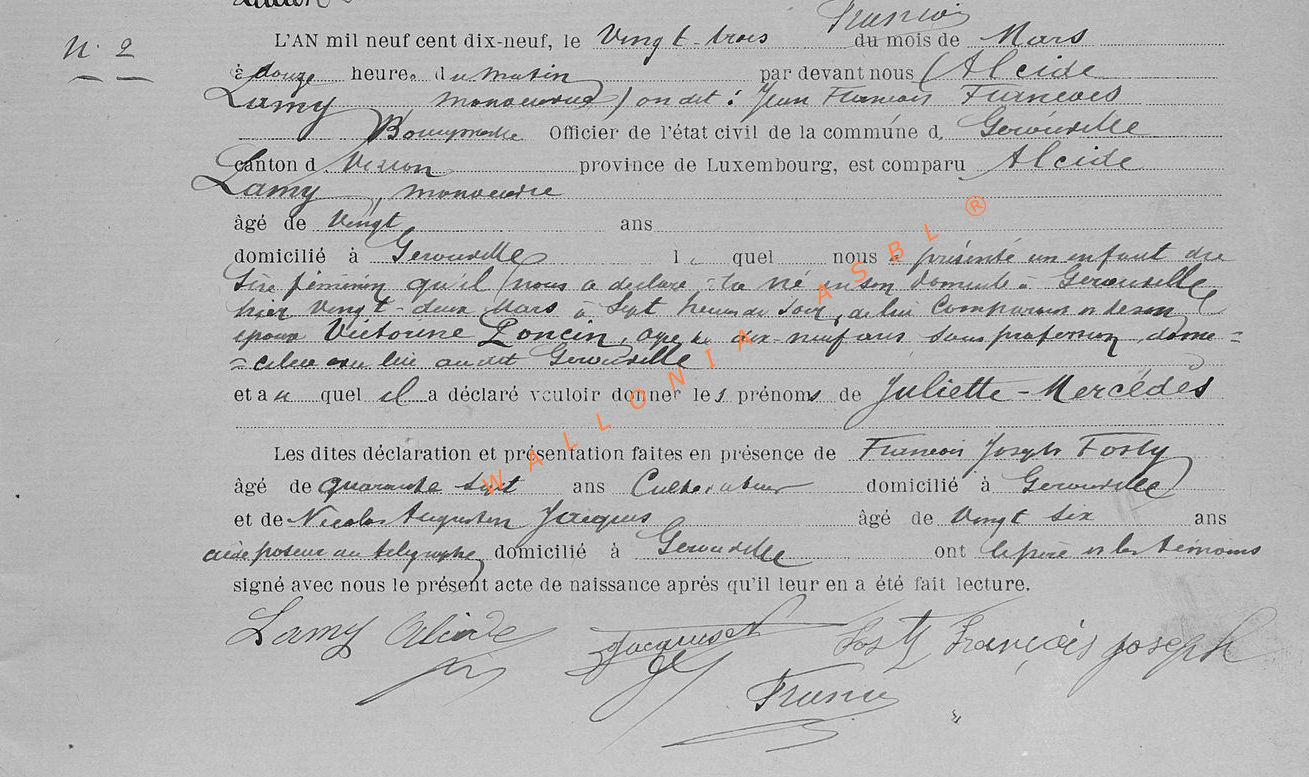 Francois
N° 2
L'AN mil neuf cent dix-neuf, le Vingt-trois du mois de Mars
à douze heures du matin par devant nous (Alcide
Lamy, manoeuvre) on dit : Jean Francois Francois
Bourgmestre Officier de l'état civil de la commune d Gerouville
canton d Virton province de Luxembourg, est comparu Alcide
Lamy, manoeuvre
âgé de Vingt ans
domicilié à Gerouville l quel nous a présenté un enfant du
féminin qu'il nous a déclaré né en son domicile à Gerouville
hier vingt-deux Mars à Sept heures du soir, de lui Comparant et de son
épouse Victorine Poncin, agée de dix-neuf ans sans profession, domi=
=ciliée avec lui audit Gerouville
et au quel il a déclaré vouloir donner les prénoms de Juliette-Mercédès
Les dites déclaration et présentation faites en présence de Francois Joseph Fosty
âgé de quarante sept ans Cultivateur domicilié à Gerouville
et de Nicolas Augustin Jacques âgé de Vingt six ans
aide poseur au télégraphe domicilié à Gerouville ont le père et les témoins
signé avec nous le présent acte de naissance après qu'il leur en a été fait lecture.
Lamy Alcide Jacques Fosty François Joseph
Francois
WALLONIA ASBL ®